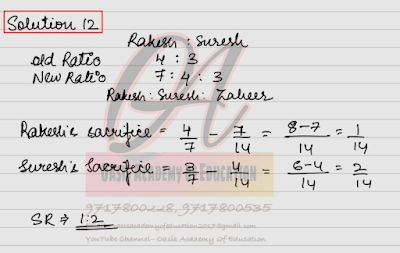 Solution 12
Rakesh : Suresh
Old Ratio 4 : 3
New Ratio 7 : 4 : 3
Rakesh : Suresh : Zaheer
Rakesh's sacrifice = 4/7 - 7/14 = 8-7/14 = 1/14
Suresh's Sacrifice = 3/7 - 4/14 = 6-4/14 = 2/14
OASIS ACADEMY OF EDUCATION
9717800228, 9717800535
SR ⇒ 1:2
YouTube Channel- Oasis Academy Of Education